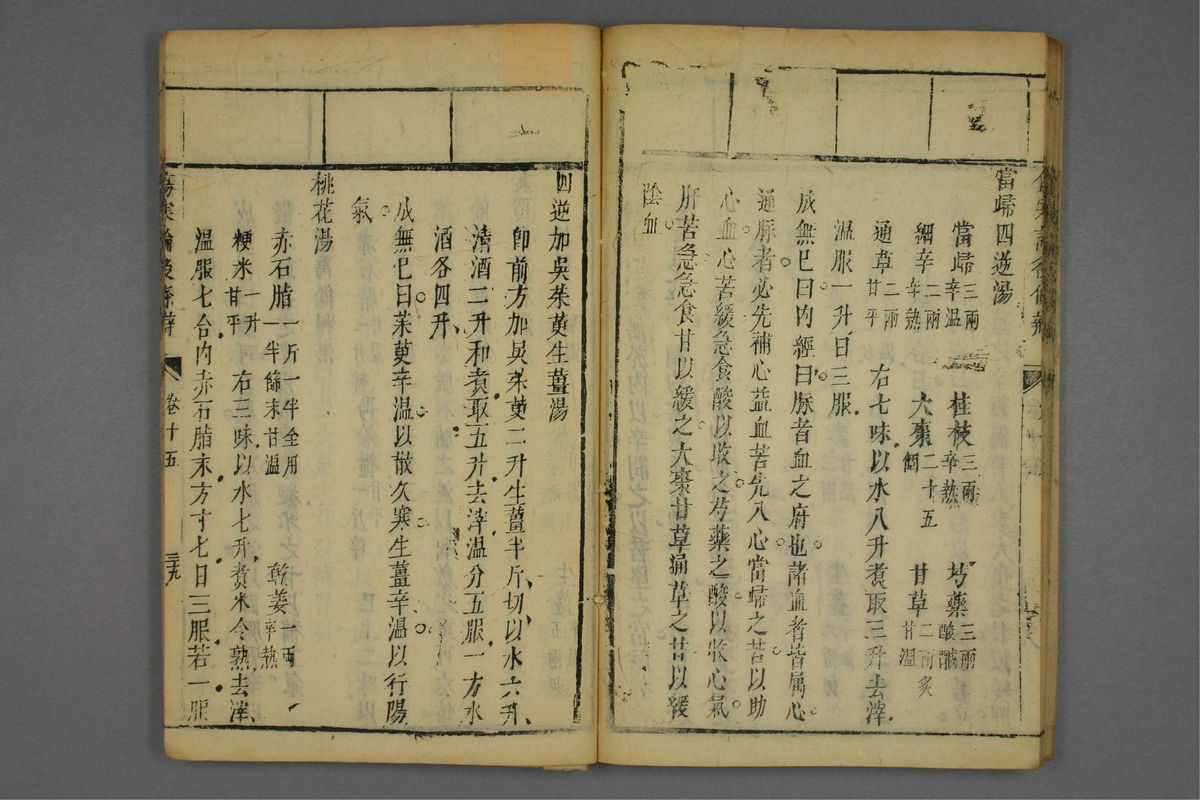 當歸四逆湯
當歸三兩辛溫 桂枝三兩辛熱 芍藥三兩酸鹹
細辛二兩辛熱 大棗二十五個 甘草二兩炙甘溫
通草二兩甘平 右七味以水八升煮取三升去滓
溫服一升日三服
成無巳曰內經曰脉者血之府也諸血者皆属心
通脉者必先補心益血苦先入心當歸之苦以助
心血心苦緩急食酸以收之芍藥之酸以收心氣
肝苦急急食甘以緩之大棗甘草通草之甘以緩
陰血
四逆加吳茱萸生薑湯
卽前方加吳茱萸二升生薑半斤切以水六升
清酒二升和煮取五升去滓溫分五服一方水
酒各四升
成無巳曰茱萸辛溫以散久寒生薑辛溫以行陽
氣
桃花湯
赤石脂一斤一半全用一半篩末甘溫 乾姜一兩辛熱
粳米一升甘平 右三味以水七升煮米令熟去滓
溫服七合內赤石脂末方寸七日三服若一服
傷寒論後條辯 卷十五 三九